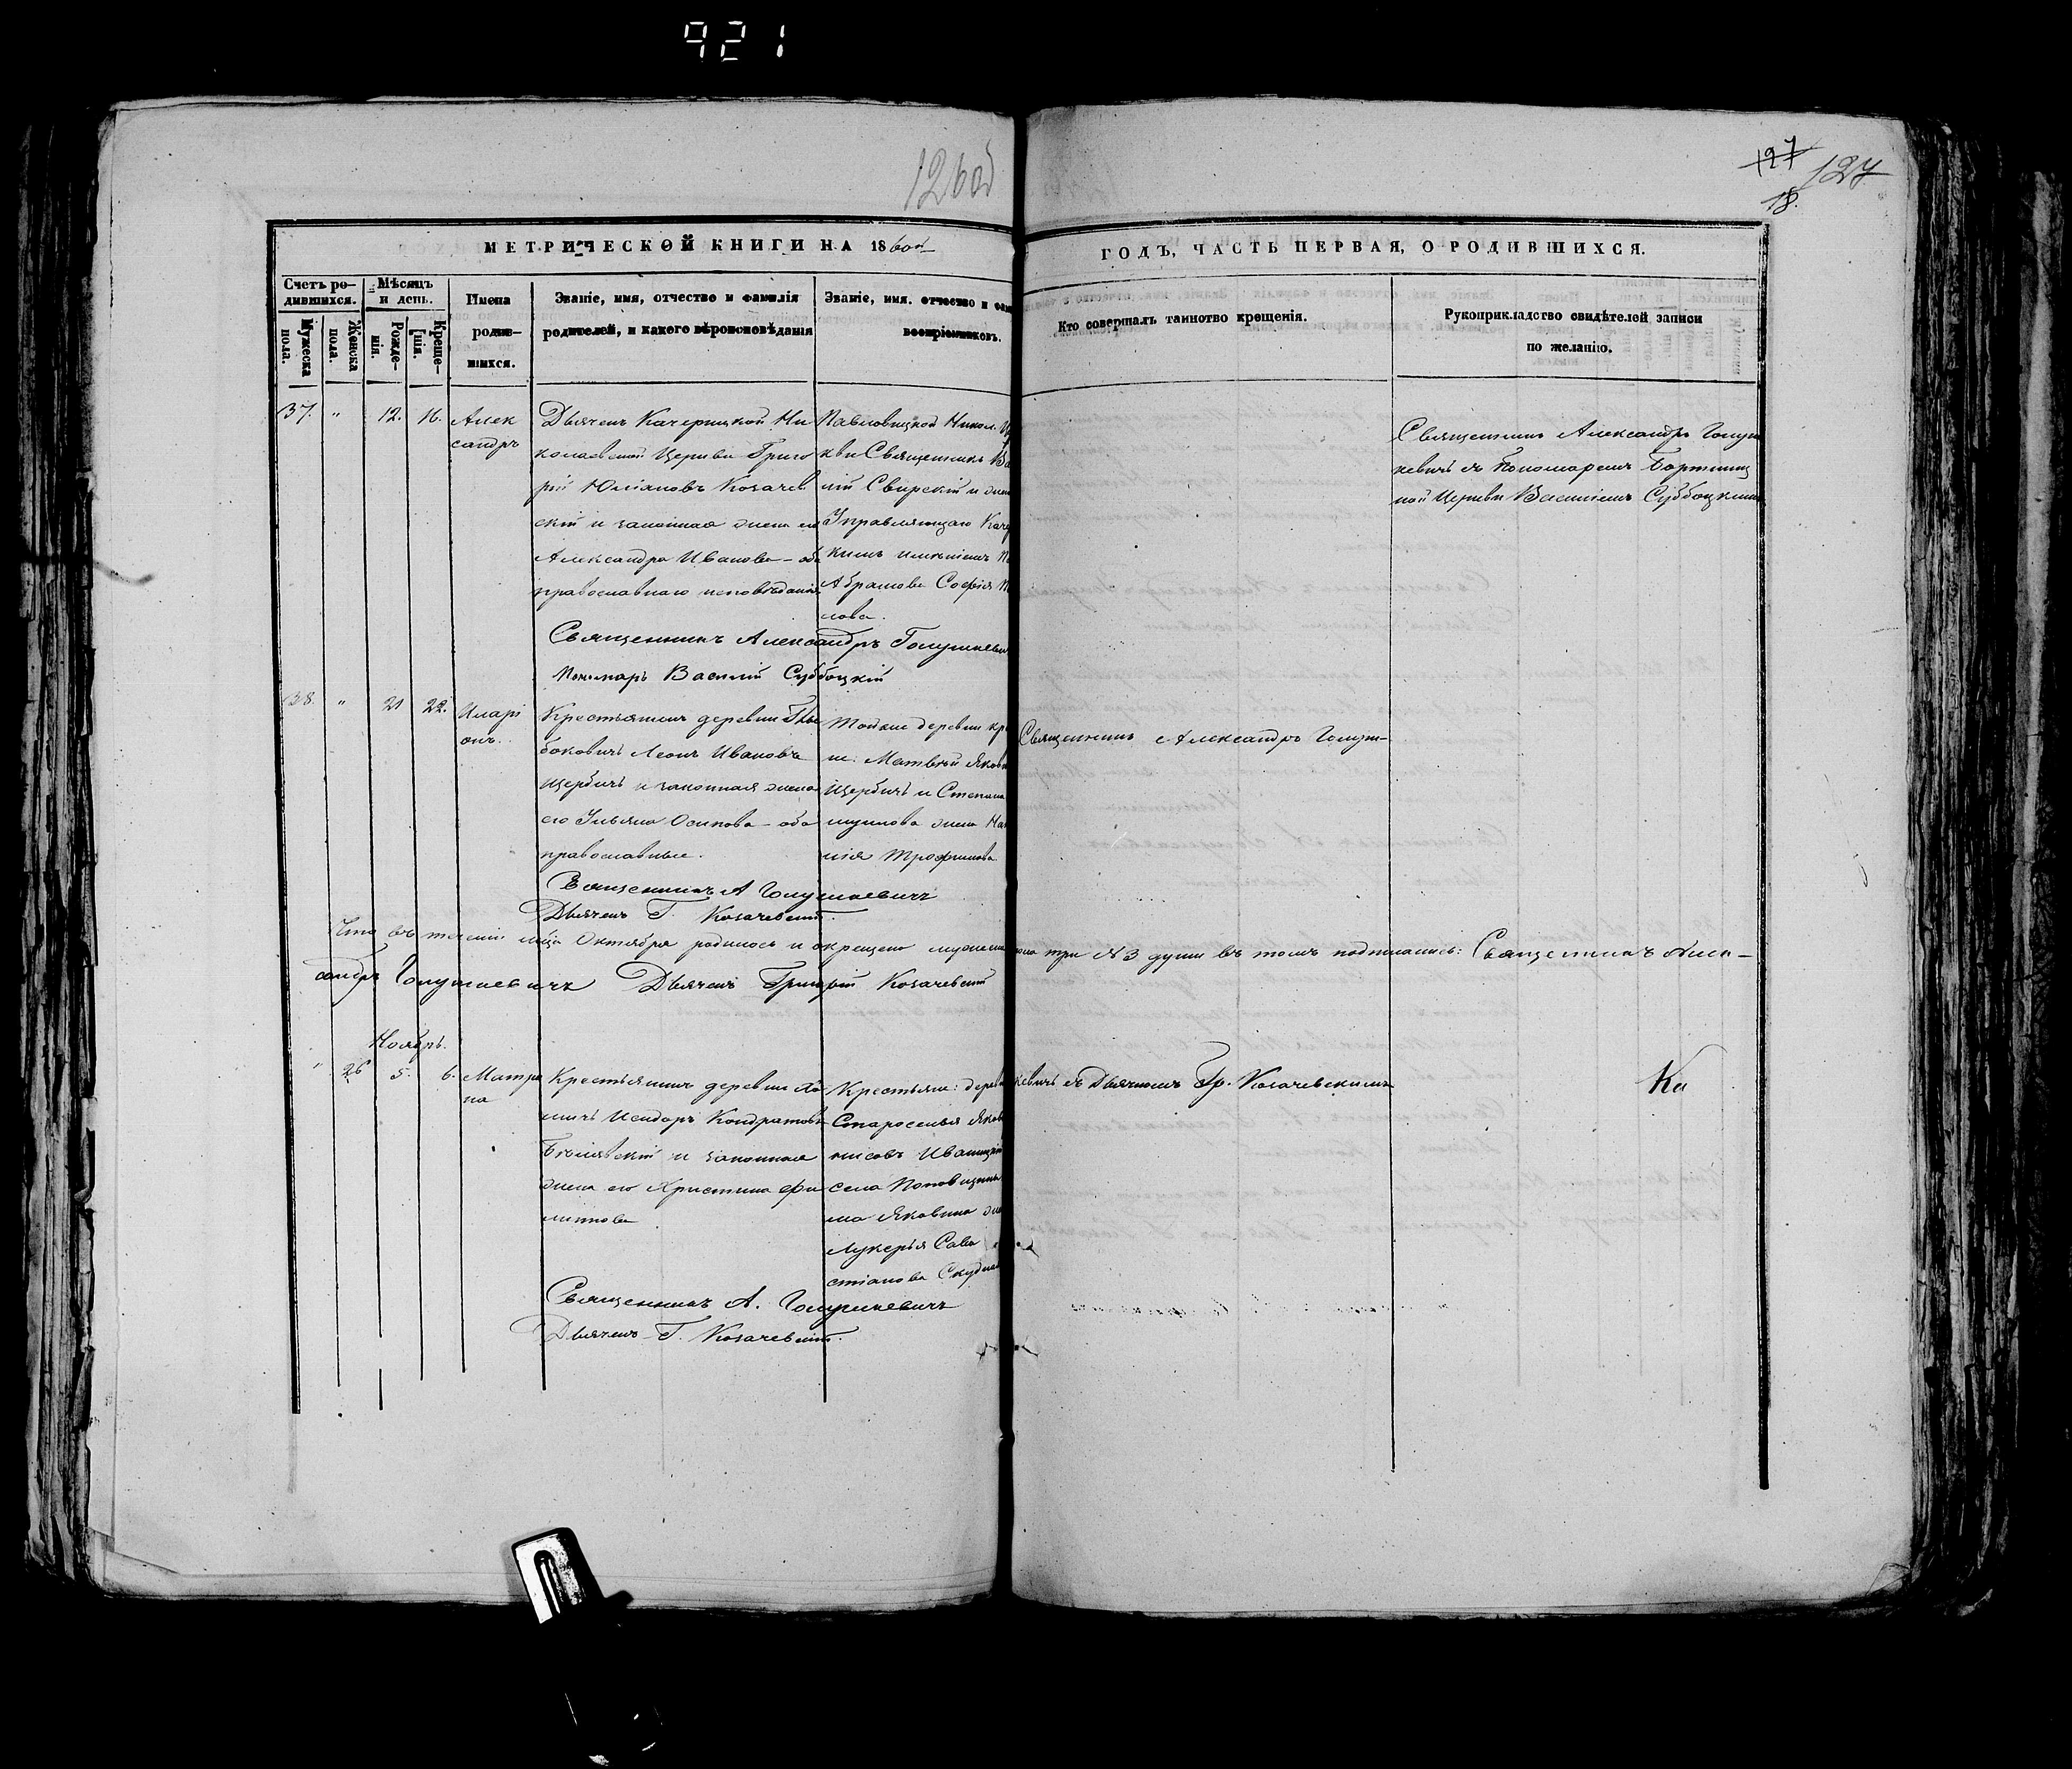 921
126об
127
127
18.
МЕТРИЧЕСКОЙ КНИГИ НА 1860й
ГОДЪ, ЧАСТЬ ПЕРВАЯ, О РОДИВШИХСЯ.
Счетъ ро-
дившихся.
Мужеска
пола.
Женска
пола.
Мѣсяцъ
и день.
Рожде-
нія.
Креще-
нія.
Имена
родив-
шихся.
Званіе, имя, отчество и фамилія
родителей, и какого вѣроисповѣданія
Званіе, имя, отчество и фам
воспріемниковъ.
Кто совершалъ таинство крещенія.
Рукоприкладство свидѣтелей записи
по желанію.
37. " 12. 16.
Алек
сандръ
Дьячекъ Качерицкой Ни
колаевской Церкви Григо
рій Юліановъ Козачев
скій и законная жена его
Александра Иванова – оба
православнаго исповѣданія.
Павловицкой Никол. Ц
кви Священникъ Ва
лій Свирскій и жен
Управляющаго Каче
кимъ имѣніемъ
Абрамова Софія
лова.
Священникъ Александръ Голуш
кевичъ съ Пономаремъ Бортниц
кой Церкви Василіемъ Суббоцкимъ
Священникъ Александръ Голушкевич
Пономарь Василій Суббоцкій
38. " 21 22.
Иларі
онъ.
Крестьянинъ деревни Глы
боковичъ Леонъ Ивановъ
Щербичъ и законная жена
его Ульяна Осипова – оба
православные.
Тойже деревни кр
ин: Матвѣй Яковл
Щербичъ и Степана
жена На
лія Трофимова
Священникъ Александръ Голуш–
Священникъ А Голушкевичъ
Дьячекъ Г. Козачевскій.
Что въ теченіи мѣца Октября родилось и окрещено мужеска пола три № 3 души въ томъ подписались: Священникъ Алек–
сандръ Голушкевичъ Дьячекъ Григорій Козачевскій
Ноябрь.
" 26 5. 6.
Матре
на
Крестьянинъ деревни Хо
мичъ Исидоръ Кондратовъ
Бѣлявскій и законная
жена его Христина Фи
липпова
Крестьяне: дерев
Староселья Яков
нисовъ Иваницкій
села Поповщины
ма Яковина же
Лукерья Сава
стіанова Скудне
кевичъ съ Дьячкомъ Гр. Козачевскимъ
Ка
Священникъ А. Голушкевичъ
Дьячекъ Г. Козачевскій.